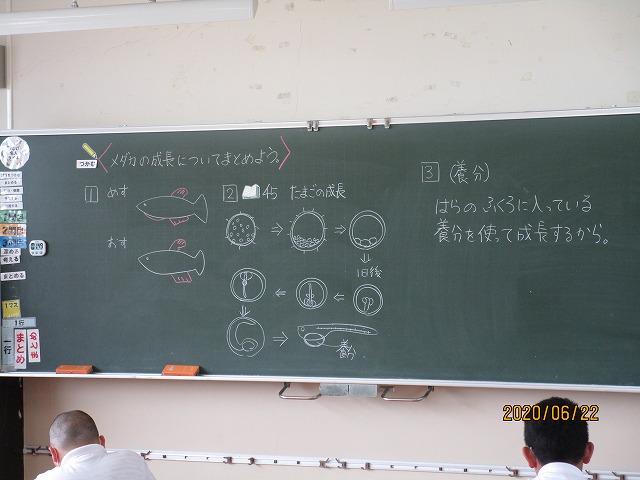 つかむ
メダカの成長についてまとめよう。
1 めす
おす
2 45 たまごの成長
1日後
養分
3 (養分)
はらのふくろに入っている
養分を使って成長するから。
考える
まとめる
1マス
1行
一行
まとめ
2020/06/22